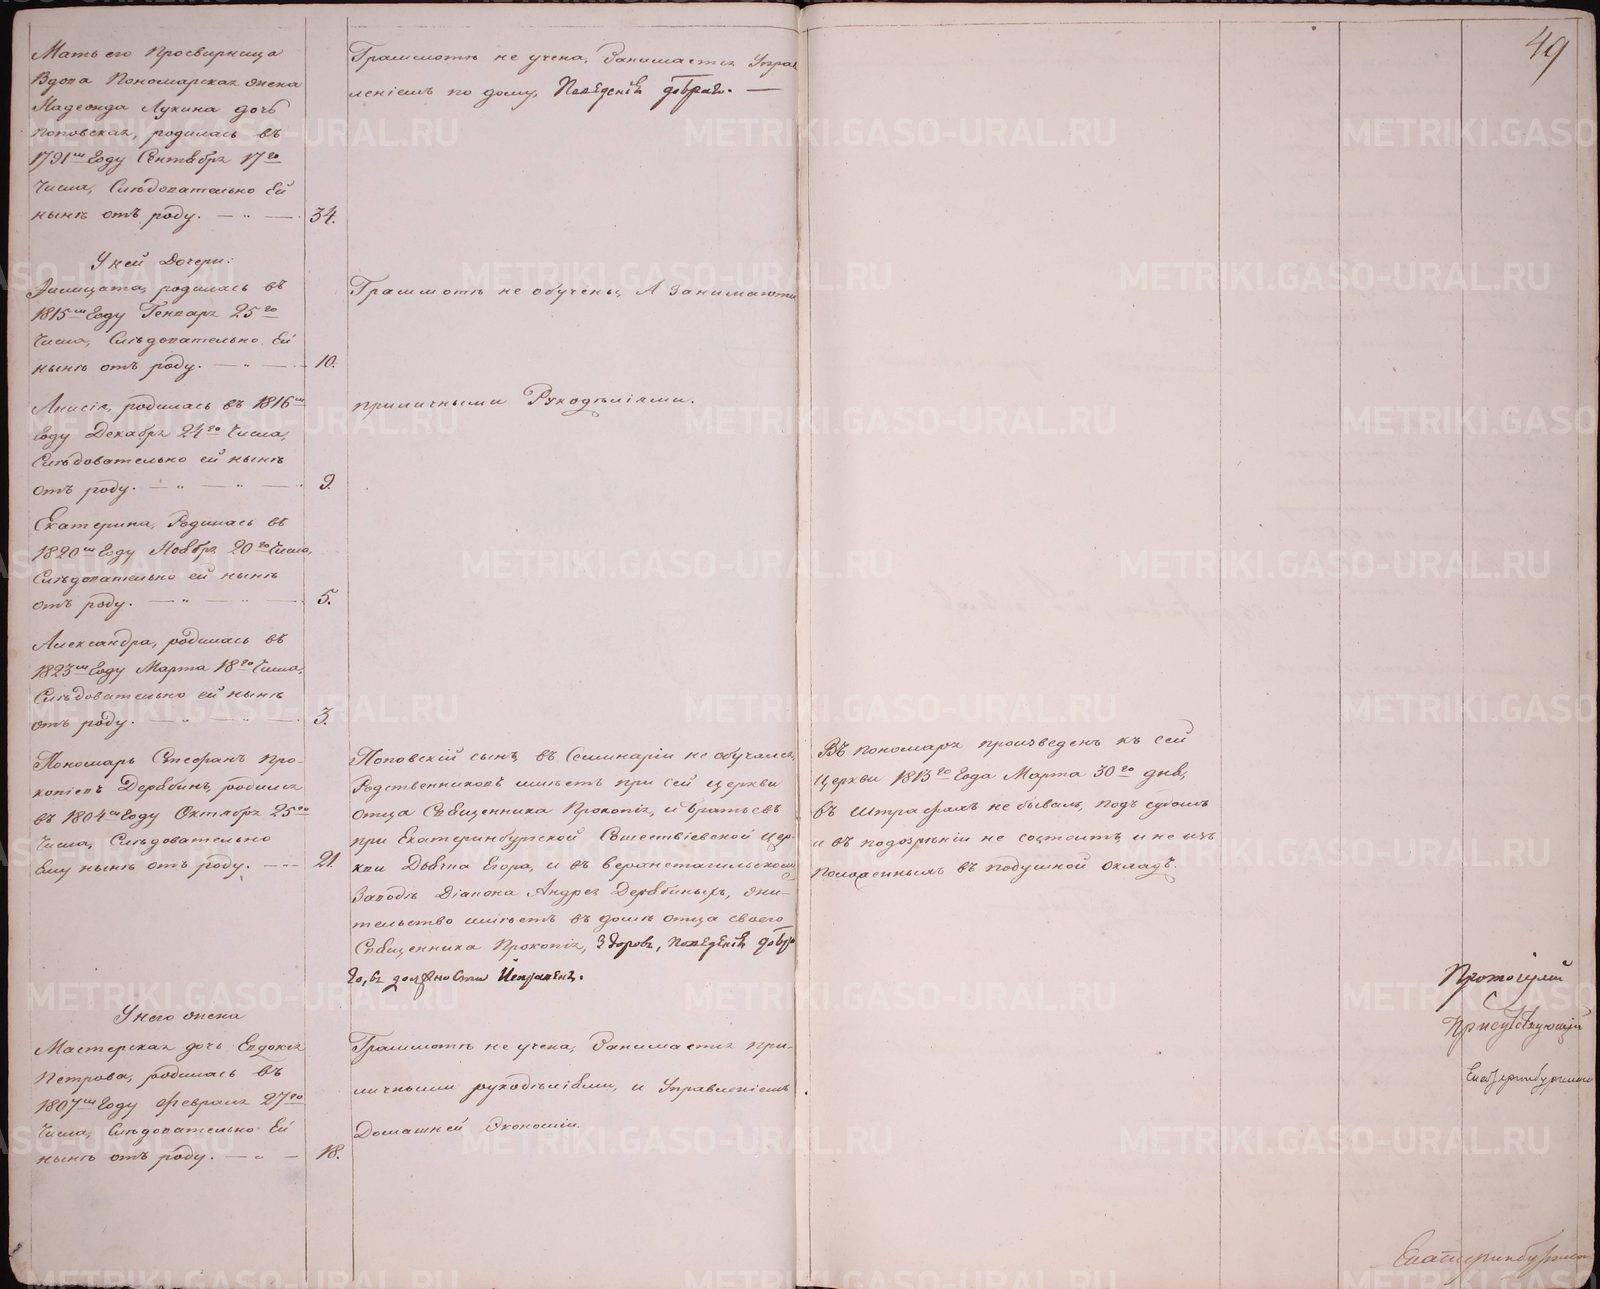 49
Мать его Просвирница
Вдова Пономарская жена
Надежда Лукина дочь
поповская, родилась въ
1791мъ Году Сентября 17го
Числа, Слѣдовательно Ей
нынѣ отъ роду. — „ — 34.
Грамотѣ не учена, Занимается Управ
леніемъ по дому, Поведенія добраго. —
У ней Дочери:
родилась въ
1815мъ Году Генваря 25го
Числа, Слѣдовательно Ей
нынѣ отъ роду. — „ — 10.
Грамотѣ не обучены, А Занимаются
Анисія, родилась въ 1816мъ
Году Декабря 24го Числа,
Слѣдовательно ей нынѣ
отъ роду. — „ — „ — 9.
приличными Рукодѣліями.
Екатерина, Родилась въ
1820мъ Году Ноября 20го Числа,
Слѣдовательно ей нынѣ
отъ роду. — „ — „ — 5.
Александра, родилась въ
1823мъ Году Марта 18го Числа,
Слѣдовательно ей нынѣ
отъ роду. — „ — „ — 3.
Пономарь Стефанъ Про-
копіевъ Дерябинъ, родился
въ 1804мъ Году Октября 25го
Числа, Слѣдовательно
Ему нынѣ отъ роду. — „ — 21.
Поповскій сынъ, въ Семинаріи не обучался,
Родственниковъ имѣетъ при сей церкви
отца Священника Прокопія, и братьевъ
при Екатеринбургской Сошествіевской цер-
кви Дьячка Егора, и въ Верхнетагильскомъ
Заводѣ Діакона Андрея Дерябиныхъ, жи-
тельство имѣетъ въ домѣ отца своего
Священника Прокопія, Здоровъ, поведенія добра
го, въ должности Исправенъ.
Въ пономаря произведенъ къ сей
Церкви 1813го Года Марта 30го дня,
въ штрафахъ не бывалъ, подъ судомъ
и въ подозрѣніи не состоитъ, и не изъ
положенныхъ въ подушной окладъ.
У него жена
Мастерская дочь Евдокія
Петрова, родилась въ
1807мъ Году Февраля 27го
Числа, Слѣдовательно Ей
нынѣ отъ роду. — „ — 18.
Грамотѣ не учена, Занимается при-
личными рукодѣліями, и Управленіемъ
Домашней Экономіи.
Протоіерей
Присутствующій
METRIKI.GASO-URAL.RU